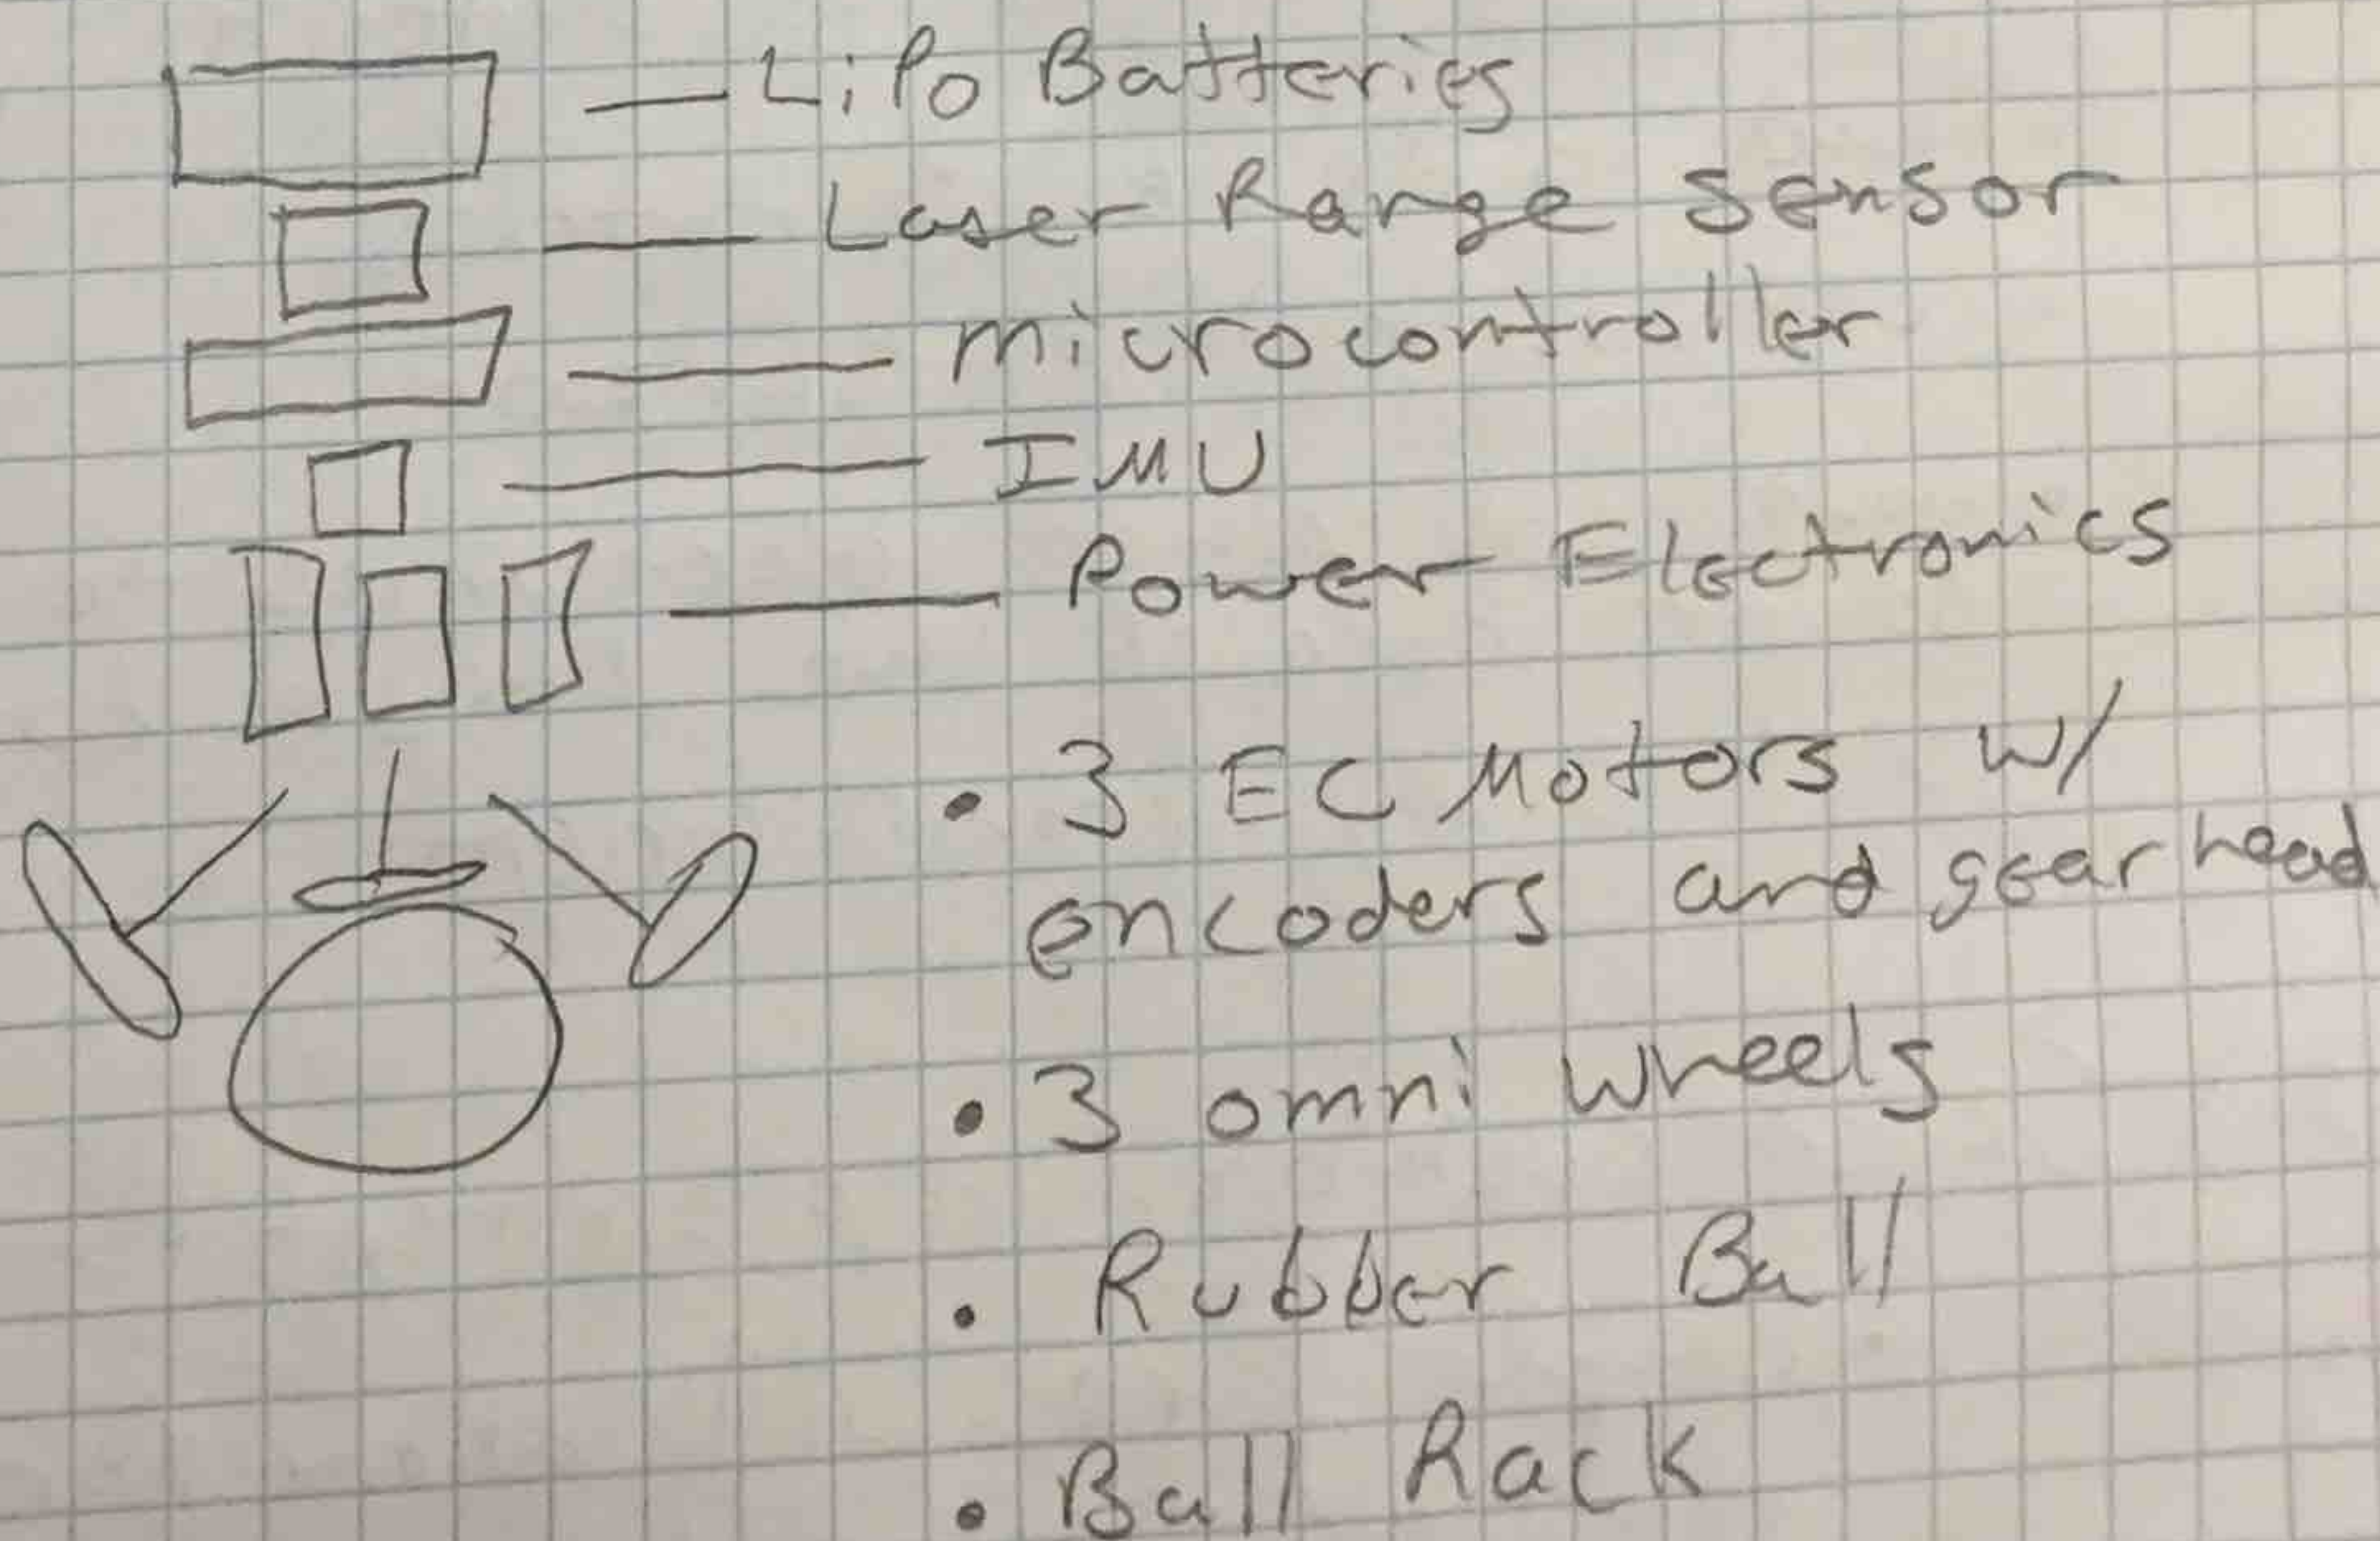 LiPo Batteries
Laser Range Sensor
microcontroller
IMU
Power Electronics
• 3 EC Motors w/
encoders and gearhead
• 3 omni wheels
• Rubber Ball
• Ball Rack